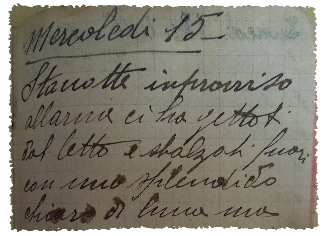 Mercoledi 15
Stanotte improvviso
allarme ci ha gettati
dal letto e sbalzati fuori
con uno splendido
chiaro di luna ma